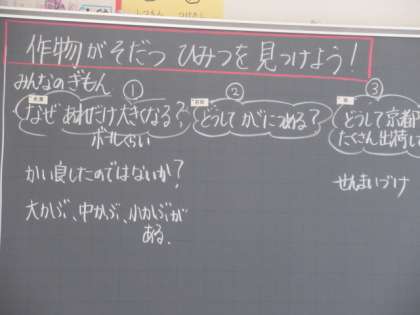 作物がそだつ ひみつを見つけよう!
みんなのぎもん
①
なぜ あれだけ大きくなる?
ボールぐらい
かい良したのではないか?
大かぶ、中かぶ、小かぶが
ある.
②
どうして かごにつめる?
③
どうして京都
たくさん出荷して
せんまいづけ